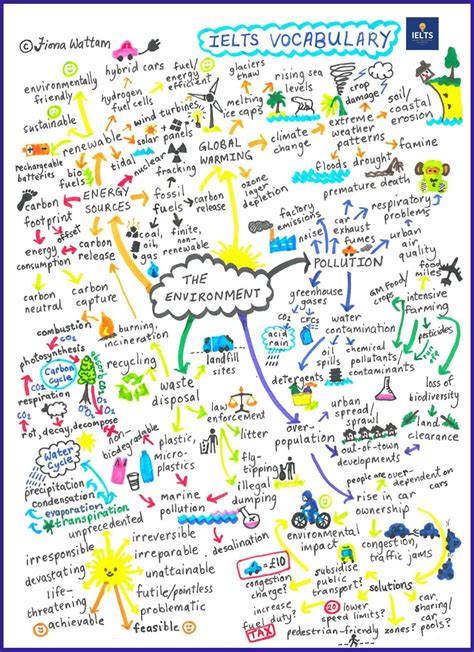 IELTS VOCABULARY
IELTS
© Fiona Wattam
environmentally
friendly
sustainable
renewable
rechargeable
batteries
hybrid cars
hydrogen
fuel cells
fuel/
energy
efficient
wind turbines
solar
panels
tidal
nuclear
fracking
bio
fuels
ENERGY
SOURCES
fossil
fuels
carbon
release
coal,
oil,
gas
finite,
non-
renewable
carbon
footprint
offset
energy
consumption
carbon
neutral
carbon
capture
glaciers
thaw
melting
ice caps
rising sea
levels
GLOBAL
WARMING
climate
change
crop
damage
extreme
weather
patterns
soil/
coastal
erosion
floods
drought
famine
premature death
ozone
layer
depletion
carbon
release
THE
ENVIRONMENT
POLLUTION
factory
emissions
noise
car
exhaust
fumes
respiratory
problems
urban
air
quality
greenhouse
gases
CO2
CFCs
acid
rain
water
contamination
oil
spills
chemical
pollutants
contaminants
detergents
GM Food
crops
food
miles
intensive
farming
pesticides
loss of
biodiversity
land
clearance
combustion
burning,
incineration
photosynthesis
CO2
Carbon
Cycle
respiration
CO2
O2
rot, decay, decompose
recycling
waste
disposal
landfill
sites
law
enforcement
litter
fly-
tipping
illegal
dumping
non-
biodegradable
plastic,
micro-
plastics
marine
pollution
desalination
over-
population
urban
spread/
sprawl
out-of-town
developments
people are over-dependent
on cars
rise in car
ownership
environmental
impact
congestion,
traffic jams
solutions
£10
congestion
charge?
subsidise
public
transport?
increase
fuel
duty?
TAX
20
lower
speed
limits?
pedestrian-friendly zones?
car
sharing/
car
pools?
Water
Cycle
precipitation
condensation
evaporation
transpiration
unprecedented
irreversible
irreparable
unattainable
futile/pointless
problematic
feasible
irresponsible
devastating
life-
threatening
achievable